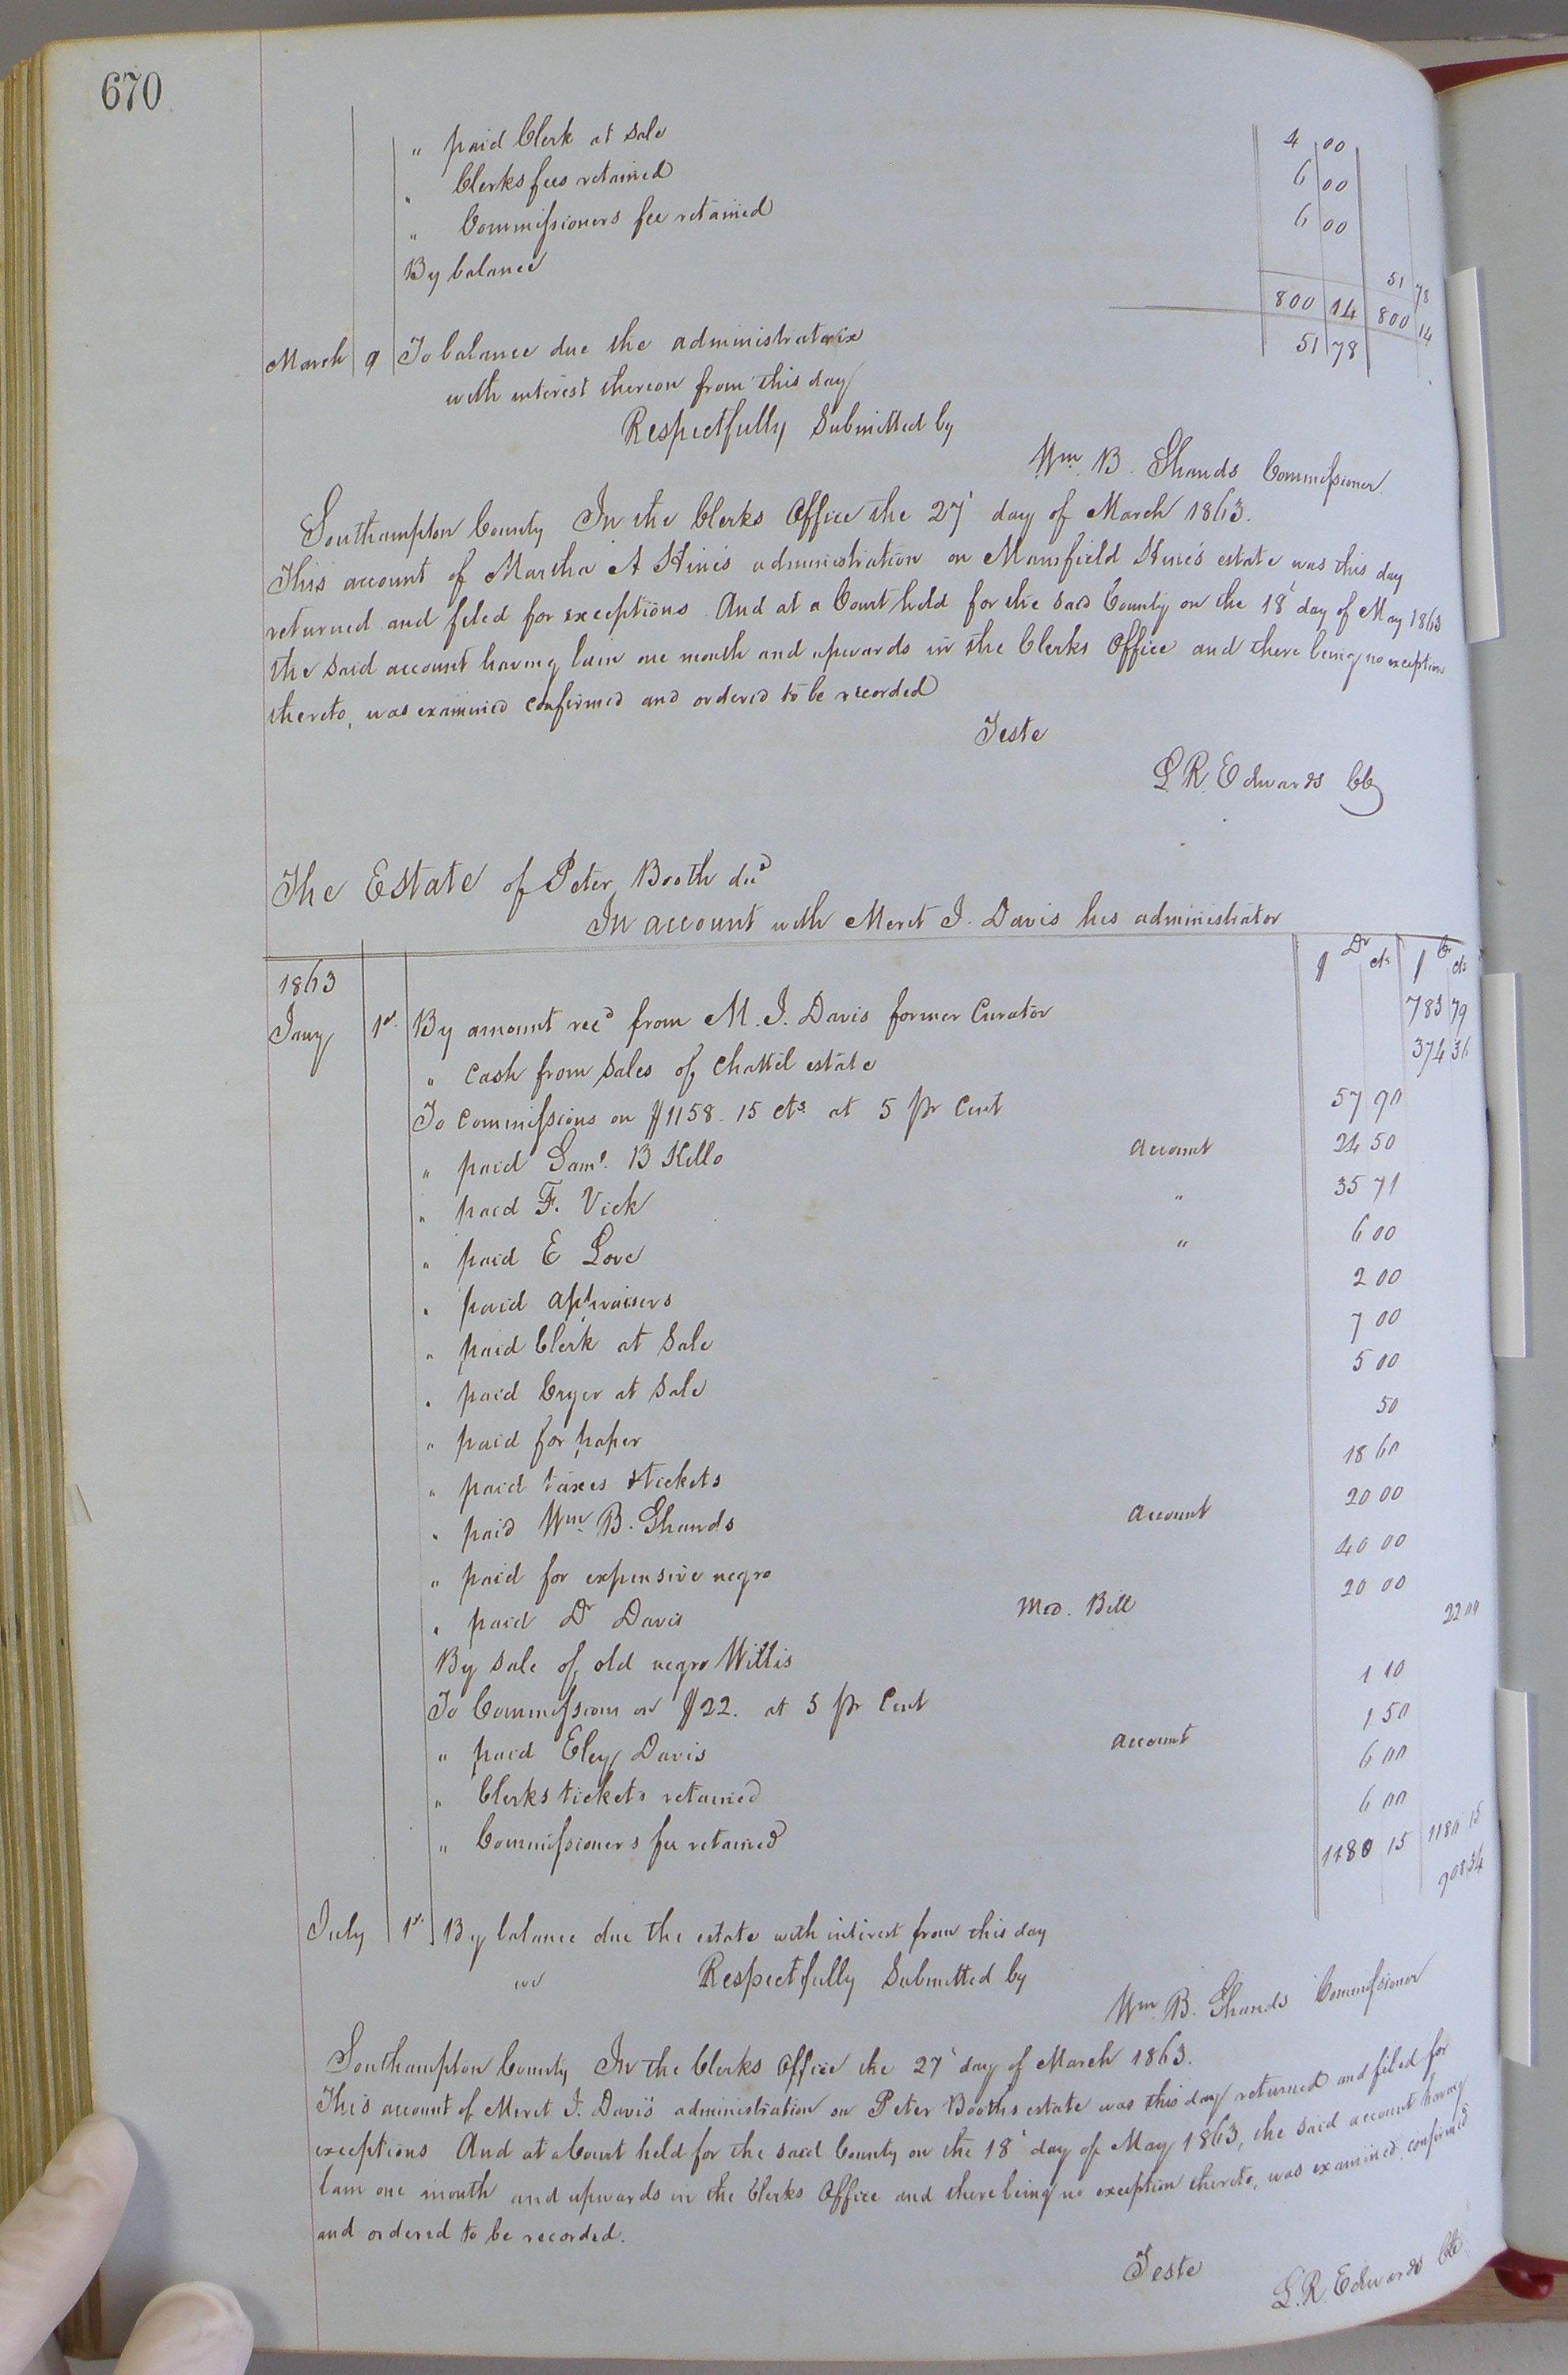 670
" paid Clerk at Sale 4 00
" Clerks fees retained 6 00
" Commissioners fee retained 6 00
By balance 51 78
800 14 800 14
March 9 To balance due the administratrix 51 78
with interest thereon from this day
Respectfully Submitted by
Wm. B. Shands Commissioner
Southampton County In the Clerks Office the 27' day of March 1863.
This account of Martha A Hine's administration on Mansfield Hine's estate was this day
returned and filed for exceptions And at a Court held for the said County on the 18' day of May 1863
the said account having lain one month and upwards in the Clerks Office and there being no exception
thereto, was examined confirmed and ordered to be recorded
Teste
L. R. Edwards CC
The Estate of Peter Booth decd
In account with Meret J. Davis his administrator
$ Dr cts $ Cr cts
1863
Jany 1st. By amount recd from M. J. Davis former Curator 783 79
" Cash from sales of Chattel estate 374 36
To Commissions on $1158.15 cts at 5 pr Cent 57 90
" paid Saml. B Kello Account 24 50
" paid F. Vick " 35 71
" paid E Love " 6 00
" paid appraisers 2 00
" paid Clerk at Sale 7 00
" paid Cryer at Sale 5 00
" paid for paper 50
" paid taxes & tickets 18 60
" paid Wm. B. Shands Account 20 00
" paid for expensive negro 40 00
" paid Dr Davis Med. Bill 20 00
By sale of old negro Willis 22 00
To Commissions on $22. at 5 pr Cent 1 10
" paid Eley Davis Account 1 50
" Clerks tickets retained 6 00
" Commissioners fee retained 6 00
1180 15 1180 15
July 1st. By balance due the estate with interest from this day 908 34
Respectfully Submitted by
Wm. B. Shands Commissioner
Southampton County In the Clerks Office the 27' day of March 1863.
This account of Meret J. Davis administration on Peter Booth's estate was this day returned and filed for
exceptions And at a Court held for the said County on the 18' day of May 1863, the said account having
lain one month and upwards in the Clerks Office and there being no exception thereto, was examined confirmed
and ordered to be recorded.
Teste
L. R. Edwards